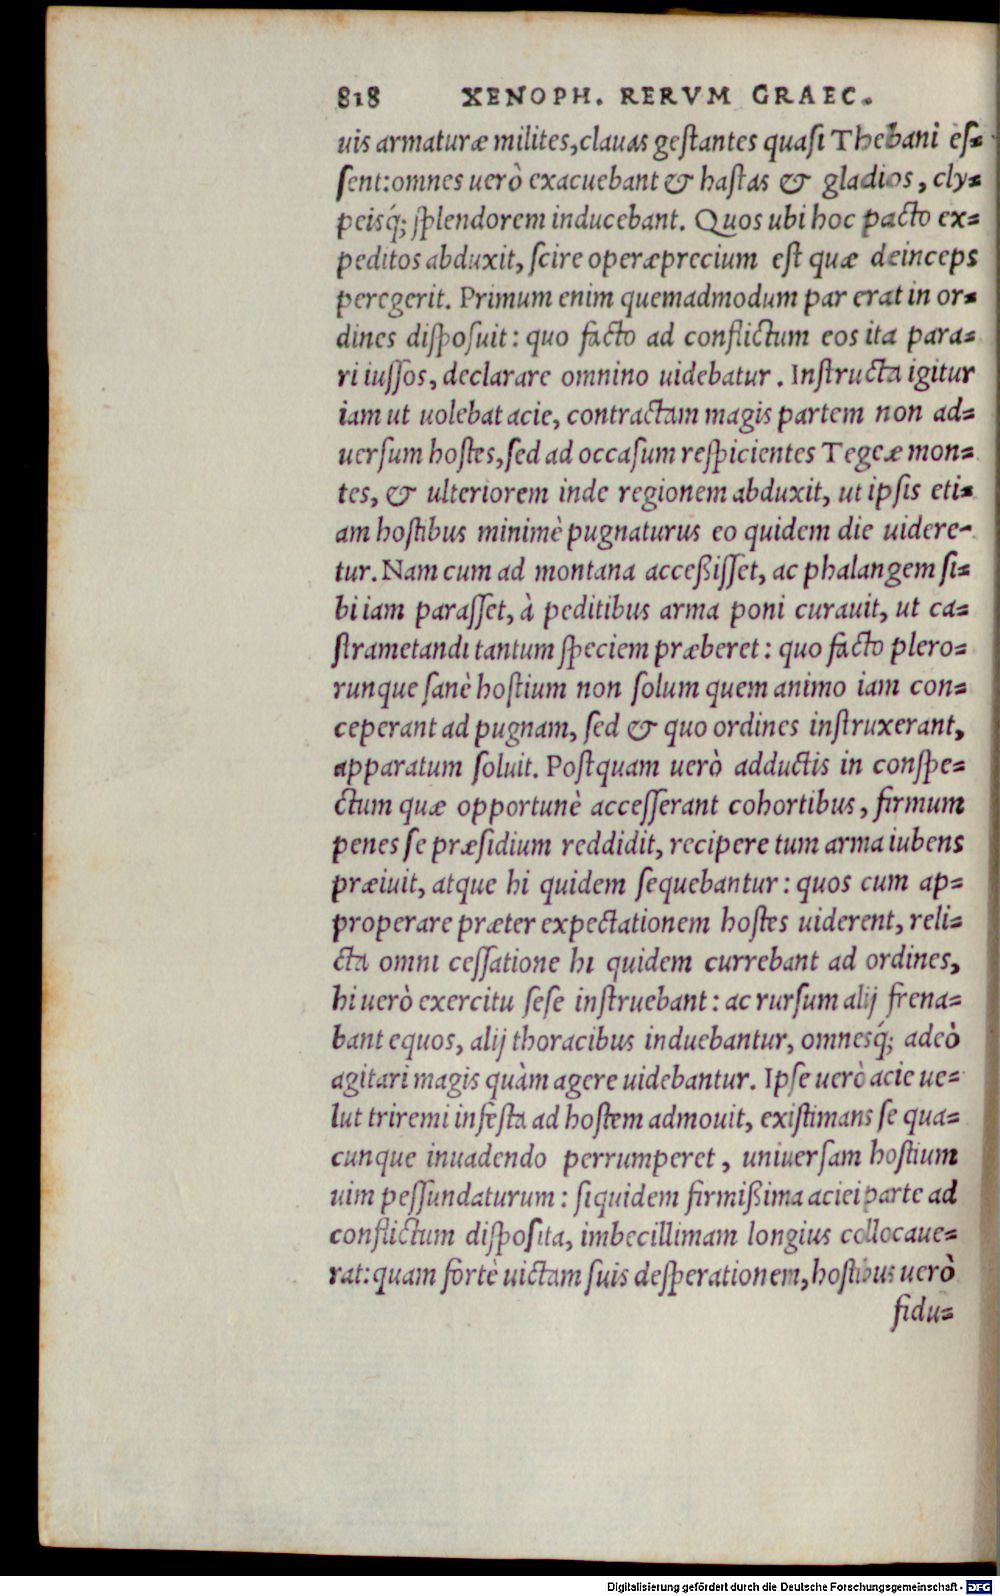 818 XENOPH. RERVM GRAEC.
uis armaturæ milites, clauas gestantes quasi Thebani es=
sent: omnes uerò exacuebant & hastas & gladios, cly=
peisq́; splendorem inducebant. Quos ubi hoc pacto ex=
peditos abduxit, scire operæprecium est quæ deinceps
peregerit. Primum enim quemadmodum par erat in or=
dines disposuit: quo facto ad conflictum eos ita para=
ri iussos, declarare omnino uidebatur. Instructa igitur
iam ut uolebat acie, contractam magis partem non ad=
uersum hostes, sed ad occasum respicientes Tegeæ mon=
tes, & ulteriorem inde regionem abduxit, ut ipsis eti=
am hostibus minimè pugnaturus eo quidem die uidere=
tur. Nam cum ad montana acceßisset, ac phalangem si=
bi iam parasset, à peditibus arma poni curauit, ut ca=
strametandi tantum speciem præberet: quo facto plero=
runque sanè hostium non solum quem animo iam con=
ceperant ad pugnam, sed & quo ordines instruxerant,
apparatum soluit. Postquam uerò adductis in conspe=
ctum quæ opportunè accesserant cohortibus, firmum
penes se præsidium reddidit, recipere tum arma iubens
præiuit, atque hi quidem sequebantur: quos cum ap=
properare præter expectationem hostes uiderent, reli=
cta omni cessatione hi quidem currebant ad ordines,
hi uerò exercitu sese instruebant: ac rursum alij frena=
bant equos, alij thoracibus induebantur, omnesq́; adeò
agitari magis quàm agere uidebantur. Ipse uerò acie ue=
lut triremi infesta ad hostem admouit, existimans se qua=
cunque inuadendo perrumperet, uniuersam hostium
uim pessundaturum: siquidem firmißima aciei parte ad
conflictum disposita, imbecillimam longius collocaue=
rat: quam fortè uictam suis desperationem, hostibus uerò
fidu=
Digitalisierung gefördert durch die Deutsche Forschungsgemeinschaft - DFG